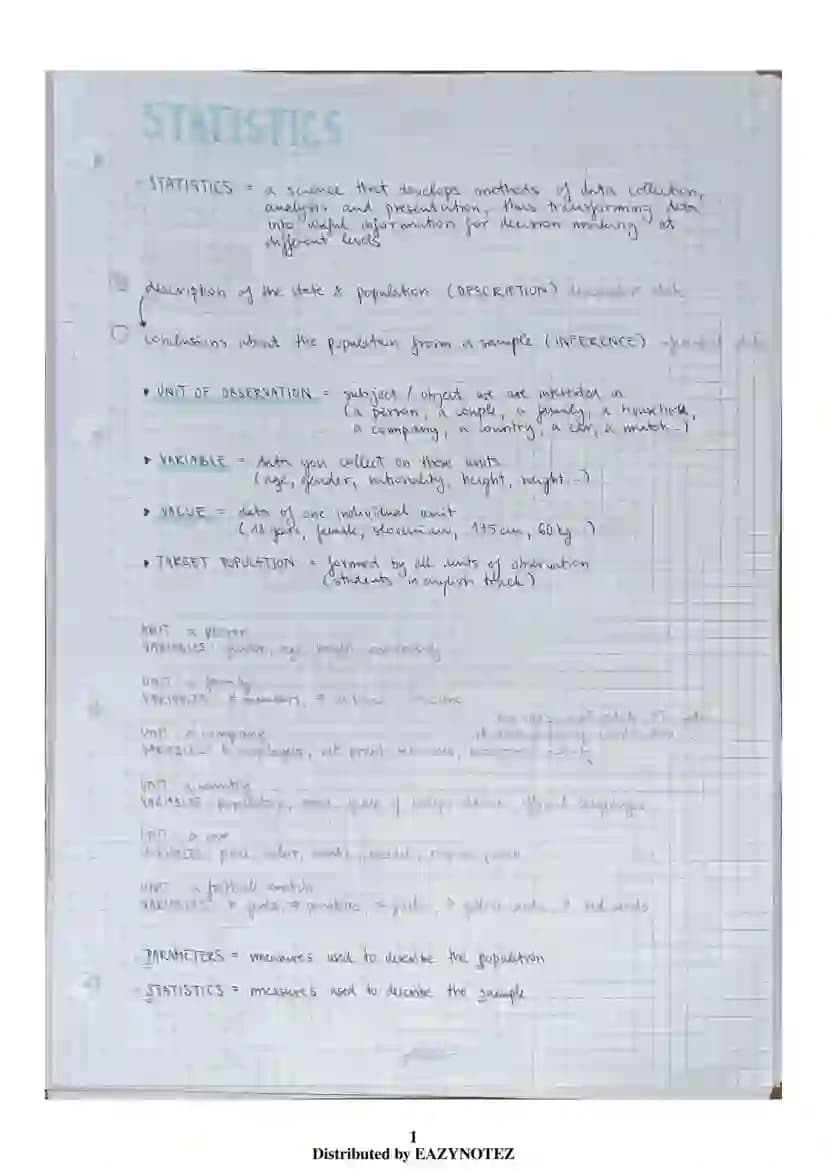 STATISTICS
STATISTICS = a science that develops methods of data collection,
analysis and presentation, thus transforming data
into useful information for decision making at
different levels
description of the state & population (DESCRIPTION)
conclusions about the population from a sample (INFERENCE)
UNIT OF OBSERVATION = subject / object we are interested in
(a person, a couple, a family, a household,
a company, a country, a car, a match...)
VARIABLE = data you collect on these units
(age, gender, nationality, height, weight...)
VALUE = data of one individual unit
(18 years, female, slovenian, 175 cm, 60 kg...)
TARGET POPULATION = formed by all units of observation
(students in english track)
UNIT a person
VARIABLES gender, age, height
UNIT a family
VARIABLES # members, #
UNIT a company
VARIABLES # employees, net profit, revenues,
UNIT a country
VARIABLES population, official languages
UNIT a car
VARIABLES price, color, model,
UNIT a football match
VARIABLES # goals, # penalties, # yellow cards, # red cards
PARAMETERS = measures used to describe the population
STATISTICS = measures used to describe the sample
1
Distributed by EAZYNOTEZ